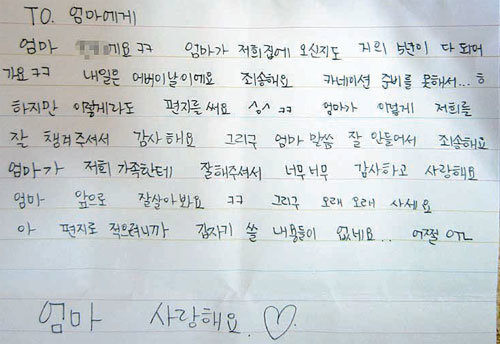 TO. 엄마에게
엄마 에요ㅋㅋ 엄마가 저희집에 오신지도 거의 5년이 다 되어
가요ㅋㅋ 내일은 어버이날이에요 죄송해요 카네이션 준비를 못해서...ㅎ
하지만 이렇게라도 편지를 써요 ^^ ㅋㅋ 엄마가 이렇게 저희를
잘 챙겨주셔서 감사해요 그리구 엄마 말씀 잘 안들어서 죄송해요
엄마가 저희 가족한테 잘해주셔서 너무너무 감사하고 사랑해요
엄마 앞으로 잘살아봐요 ㅋㅋ 그리구 오래 오래 사세요
아 편지로 적으려니까 갑자기 쓸 내용들이 없네요.. 어쩔
엄마 사랑해요. ♡